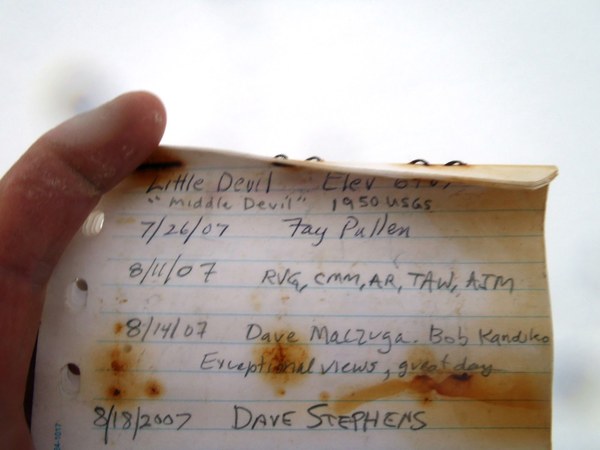 Little Devil Elev
"Middle Devil" 1950 USGS
7/26/07 Fay Pullen
8/11/07 RVG, CMM, AR, TAW, AJM
8/14/07 Dave Maczuga. Bob Kandiko
Exceptional views, great day
8/18/2007 DAVE STEPHENS